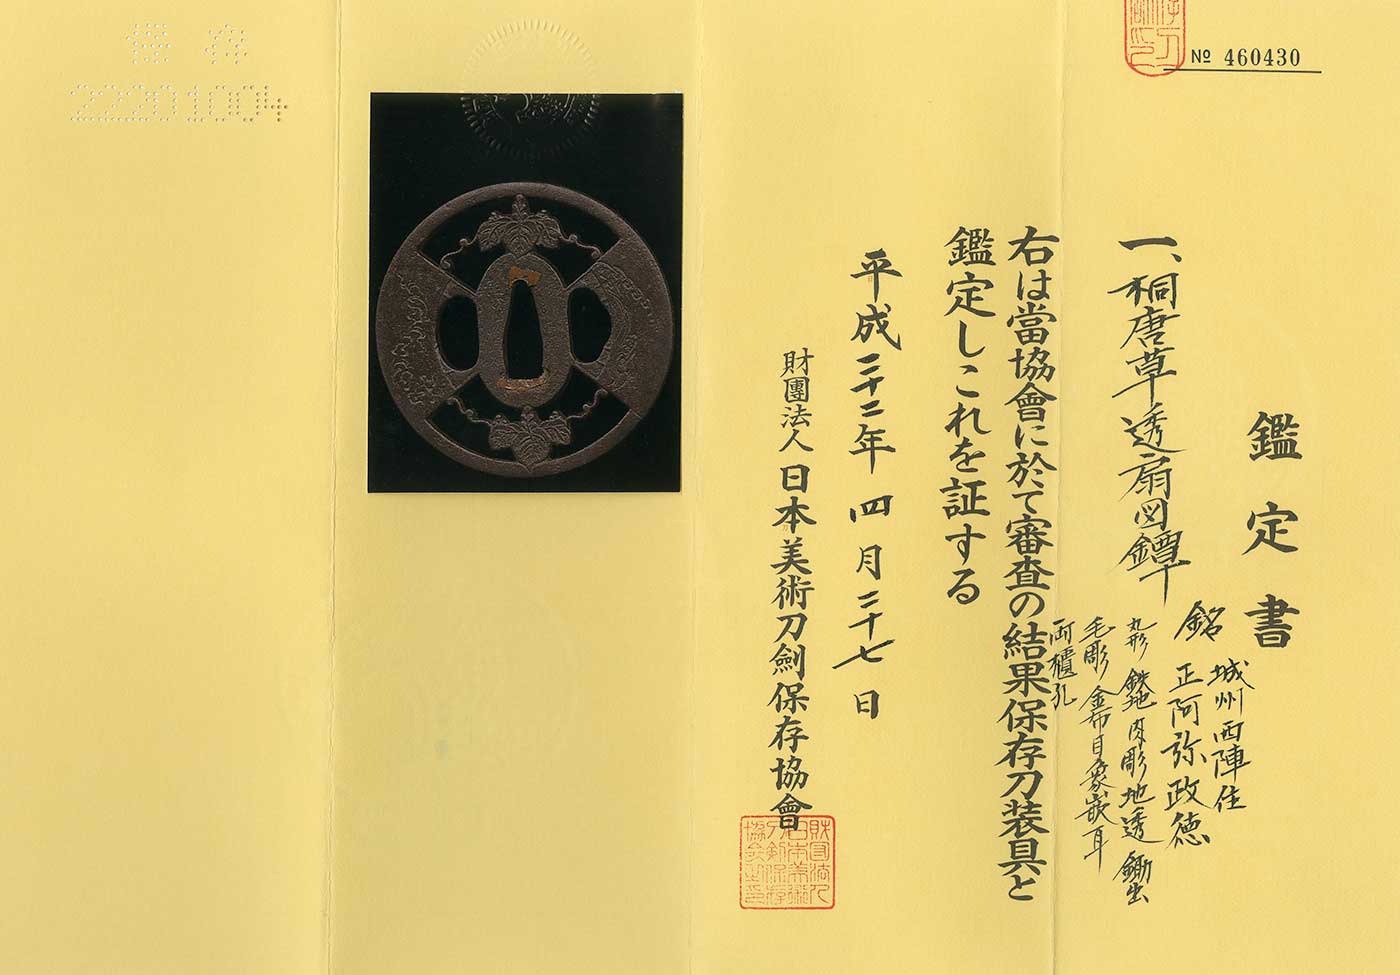 № 460430
鑑定書
一、桐唐草透扇図鐔
銘 城州西陣住
正阿弥政徳
丸形 鉄地 肉彫地透 鋤出
毛彫 金布目象嵌 耳
両櫃孔
右は當協會に於て審査の結果保存刀装具と
鑑定しこれを証する
平成二十二年 四月二十七日
財團法人 日本美術刀劍保存協會
財団法人日本美術刀剣保存協会之印
保存
22201004